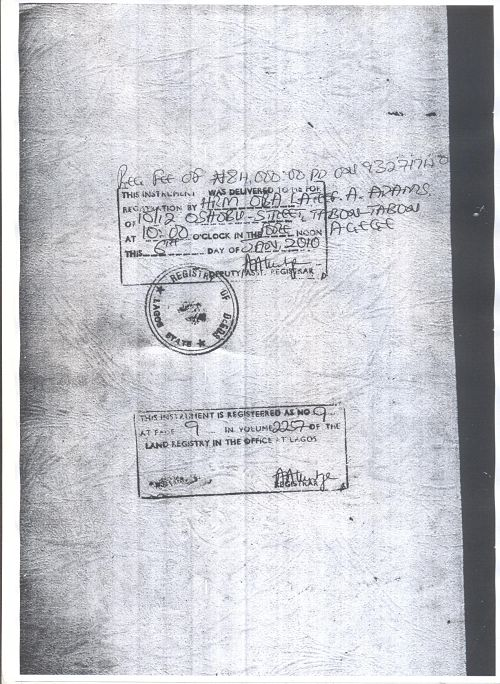 REG FEE OF ₦84,000:00 PD ON 932717140
THIS INSTRUMENT WAS DELIVERED TO ME FOR
REGISTRATION BY HRM OBA LATEEF. A. ADAMS
OF 10/12 OSHOBU-STREET, TABON-TABON
AT 10:00 O'CLOCK IN THE FORE NOON AGEGE
THIS 8TH DAY OF JAN, 2010
DEPUTY/ASST. REGISTRAR
REGISTRY OF DEEDS
STATE
THIS INSTRUMENT IS REGISTERED AS NO 9
AT PAGE 9 IN VOLUME 2257 OF THE
LAND REGISTRY IN THE OFFICE AT LAGOS
REGISTRAR